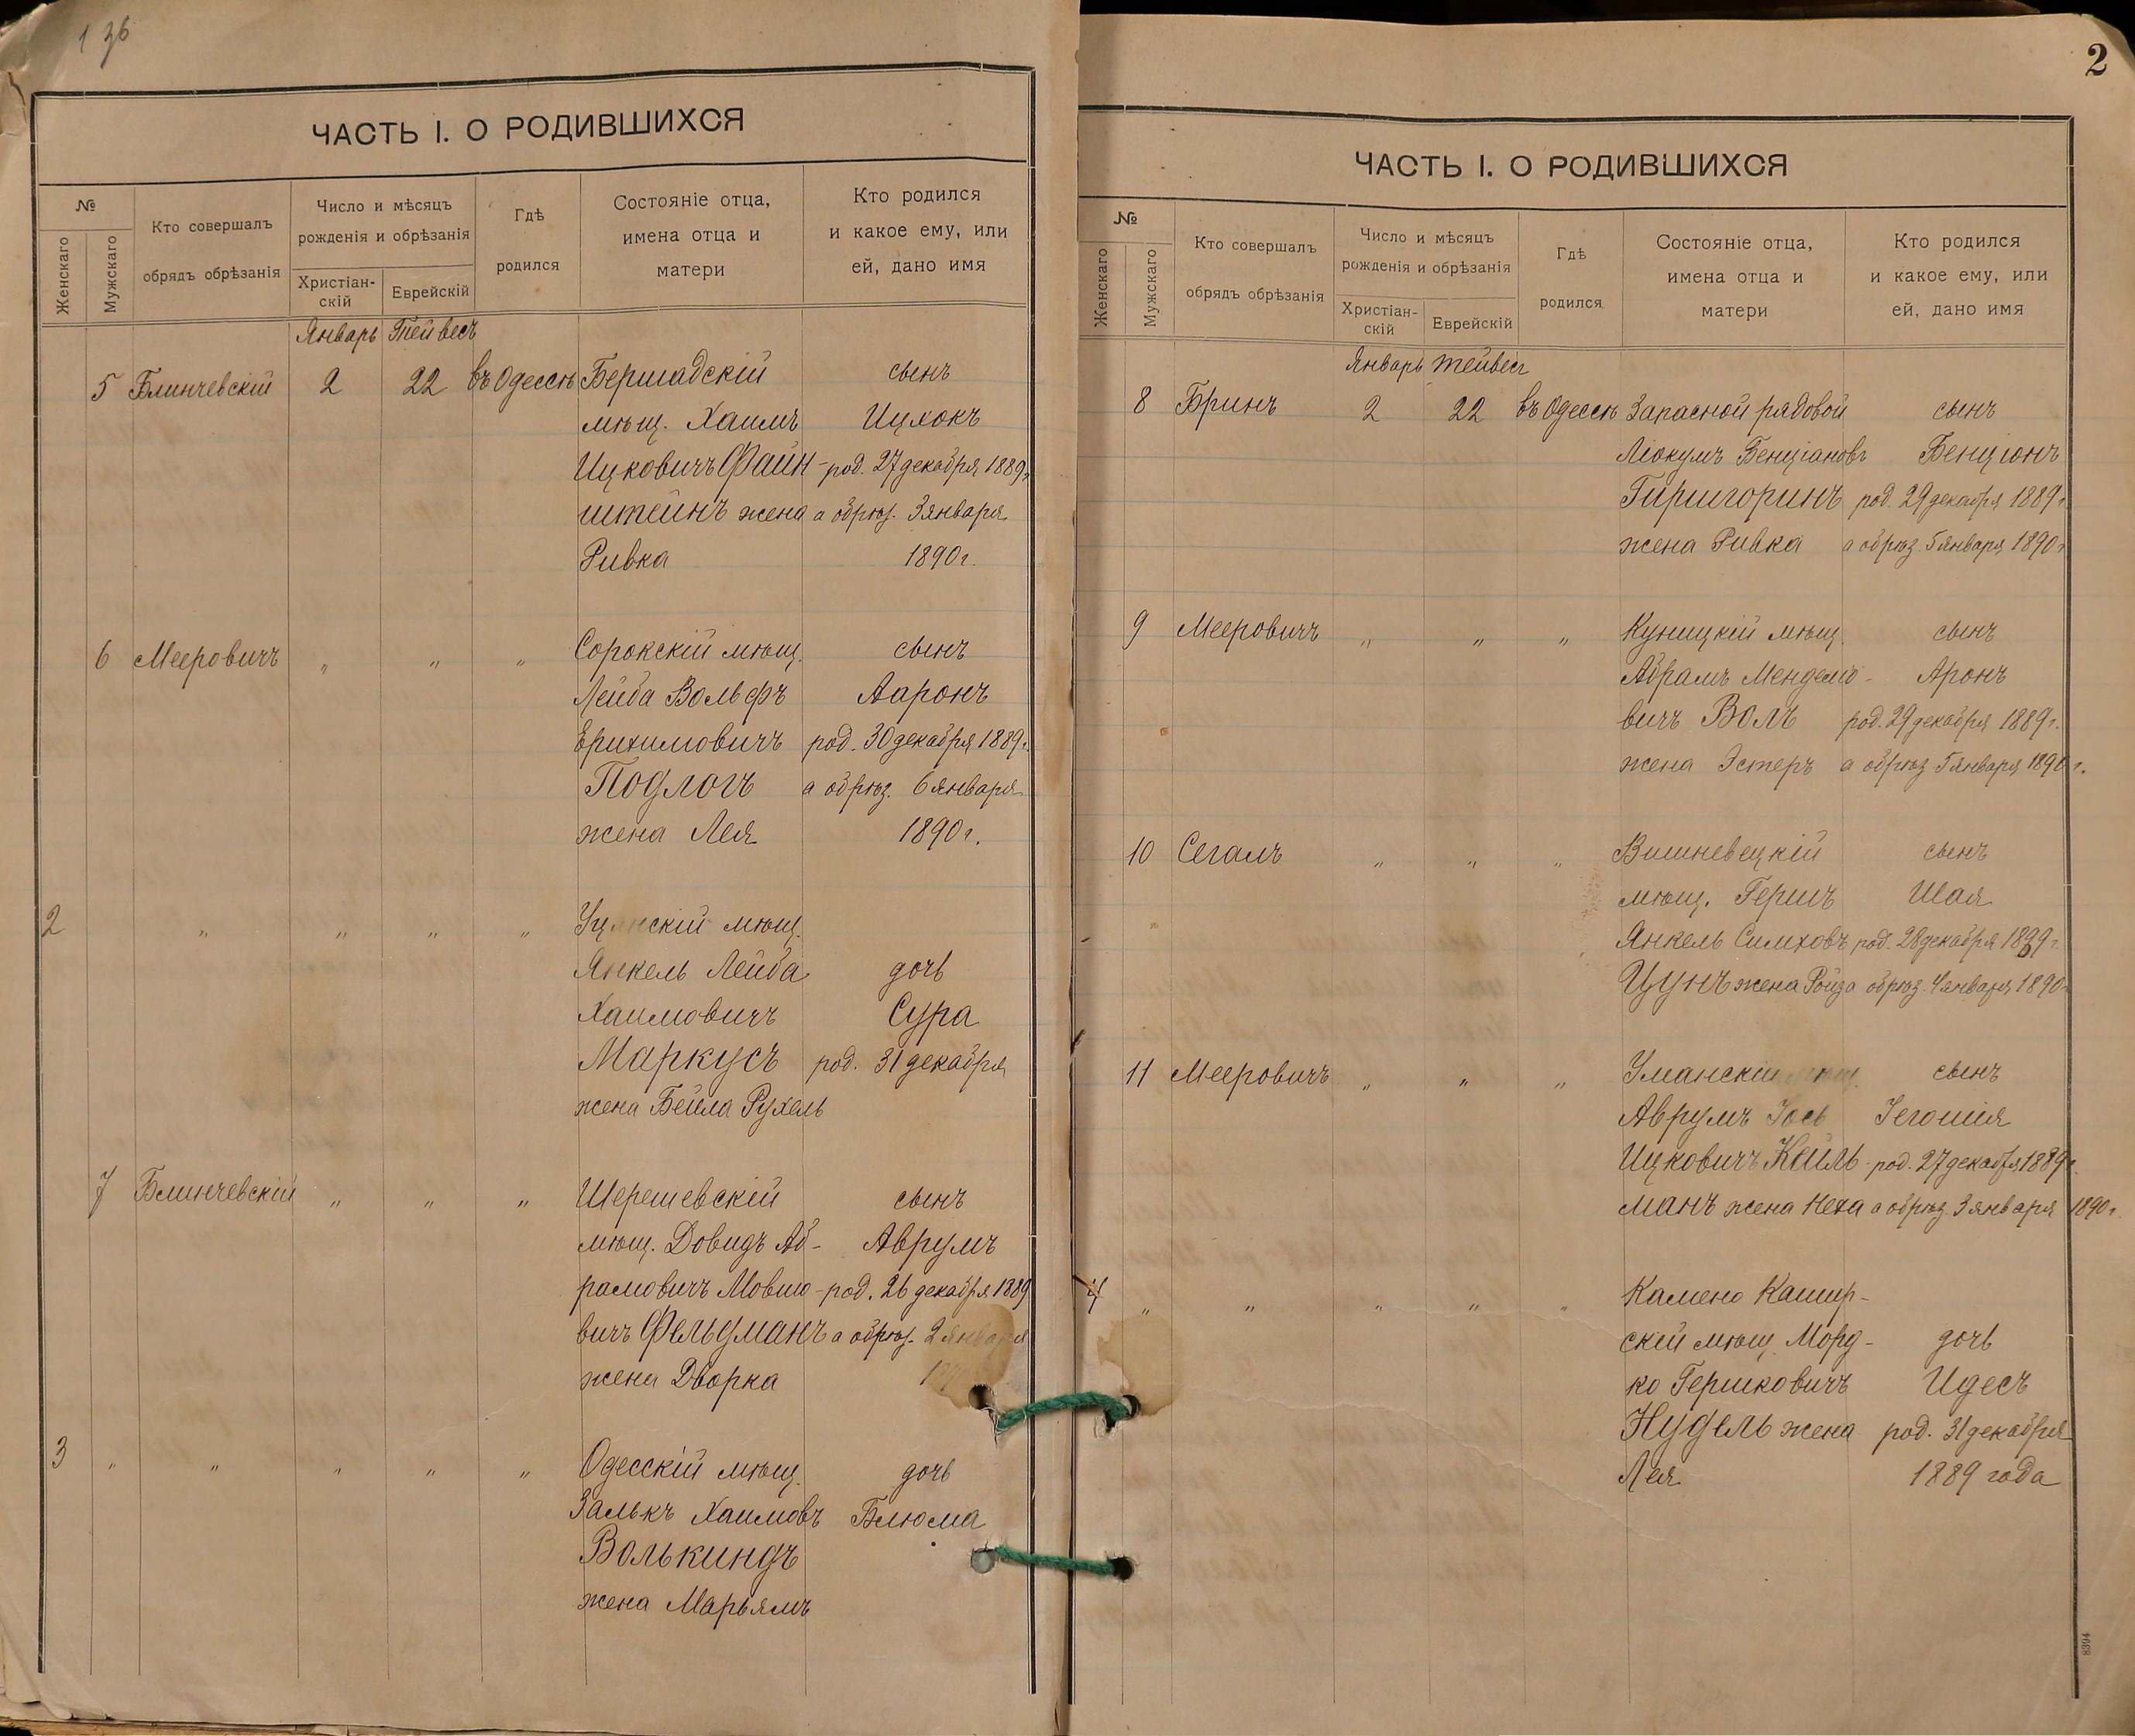 1 36
ЧАСТЬ I. О РОДИВШИХСЯ
№
Женскаго
Мужскаго
Кто совершалъ
обрядъ обрѣзанія
Число и мѣсяцъ
рожденія и обрѣзанія
Христіан-
скій
Еврейскій
Гдѣ
родился
Состояніе отца,
имена отца и
матери
Кто родился
и какое ему, или
ей, дано имя
Январь Тейвесъ
5 Блинчевскій 2 22 въ Одессѣ Бершадскій сынъ
мѣщ. Хаимъ Ицхокъ
Ицковичъ Файн- род. 27 декабря 1889г.
штейнъ жена а обрѣз. 3 января
Ривка 1890г.
6 Мееровичъ „ „ „ Сорокскій мѣщ. сынъ
Лейба Вольфъ Ааронъ
Ерихимовичъ род. 30 декабря 1889г.
Подлогъ а обрѣз. 6 января
жена Лея 1890г.
2 „ „ „ „ мѣщ.
Янкель Лейба дочь
Хаимовичъ Сура
Маркусъ род. 31 декабря
жена Бейла Рухель
7 Блинчевскій „ „ „ Шерешевскій сынъ
мѣщ. Довидъ Аб- Аврумъ
рамовичъ Мовшо- род. 26 декабря 1889
вичъ Фельдманъ а обрѣз. 2 января
жена Дворка
3 „ „ „ „ „ Одесскій мѣщ. дочь
Залькъ Хаимовъ Блюма
Волькиндъ
жена Марьямъ
2
ЧАСТЬ I. О РОДИВШИХСЯ
№
Женскаго
Мужскаго
Кто совершалъ
обрядъ обрѣзанія
Число и мѣсяцъ
рожденія и обрѣзанія
Христіан-
скій
Еврейскій
Гдѣ
родился
Состояніе отца,
имена отца и
матери
Кто родился
и какое ему, или
ей, дано имя
Январь Тейвесъ
8 Бринъ 2 22 въ Одессѣ Запасной рядовой сынъ
Ліокумъ Бенціановъ Бенціонъ
Гиршгоринъ род. 29 декабря 1889г.
жена Ривка а обрѣз. 5 января 1890г.
9 Мееровичъ „ „ „ Куницкій мѣщ. сынъ
Абрамъ Менделіо- Аронъ
вичъ Волъ род. 29 декабря 1889г.
жена Эстеръ а обрѣз 5 января 1890г.
10 Сегалъ „ „ „ Вишневецкій сынъ
мѣщ. Гершъ Шая
Янкель Симховъ род. 28 декабря 1889г.
Цунъ жена Ройза обрѣз. 4 января 1890г.
11 Мееровичъ „ „ „ Уманскій мѣщ. сынъ
Аврумъ Іось Іегошія
Ицковичъ Кейль- род. 27 декабря 1889г.
манъ жена Неха а обрѣз. 3 января 1890г.
4 „ „ „ „ „ Камено Кашир-
скій мѣщ. Морд- дочь
ко Гершковичъ Идесъ
Нудель жена род. 31 декабря
Лея 1889 года
8394